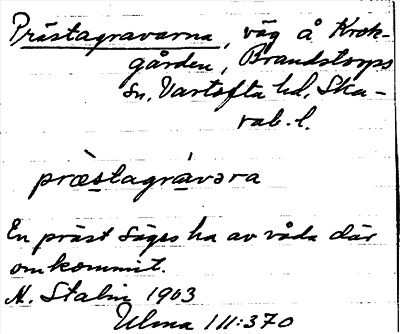 Prästagravarna, väg å Krok-
gården, Brandstorps
sn, Vartofta hd, Ska-
rab. l.
præ̀stagrávəra
En präst säges ha av våda där
omkommit.
N. Stalin 1903
Ulma 111:370